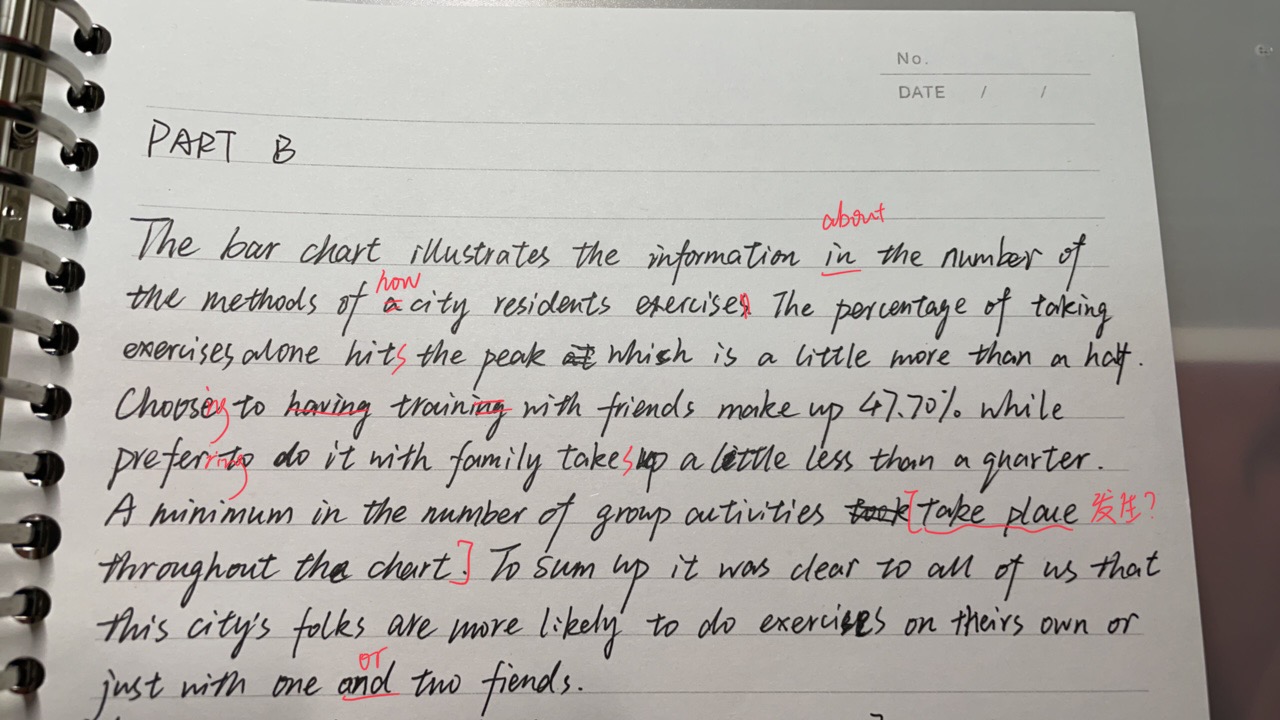 No.
DATE / /
PART B
about
The bar chart illustrates the information in the number of
how
the methods of a city residents exercises. The percentage of taking
exercises alone hits the peak at which is a little more than a half.
Choosing to having training with friends make up 47.70% while
preferring to do it with family takes up a little less than a quarter.
A minimum in the number of group activities took [take place 发生?
throughout the chart.] To sum up it was clear to all of us that
this city's folks are more likely to do exercises on theirs own or
or
just with one and two fiends.